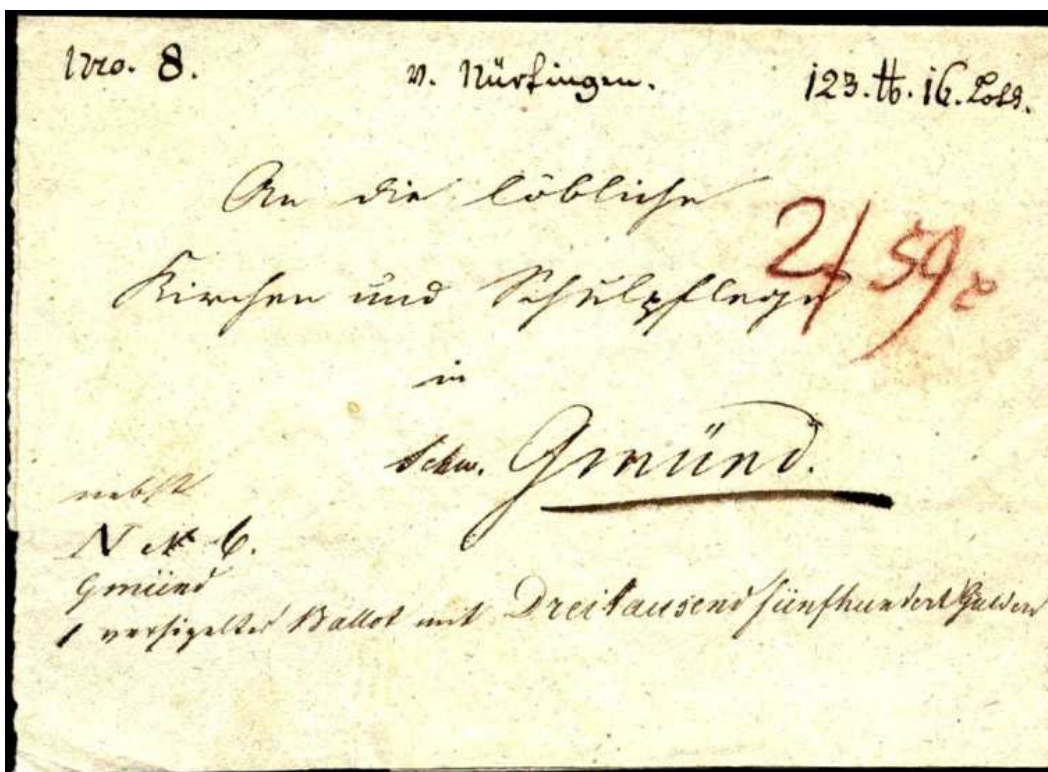 Nro. 8. v. Nürtingen. 123. ℔. 16. Loth.
An die löbliche
Kirchen und Schulpflege 2/59
in
Schw. Gmünd.
nebst
N 6.
Gmünd
1 versigelter Ballot mit Dreitausend fünfhundert Gulden